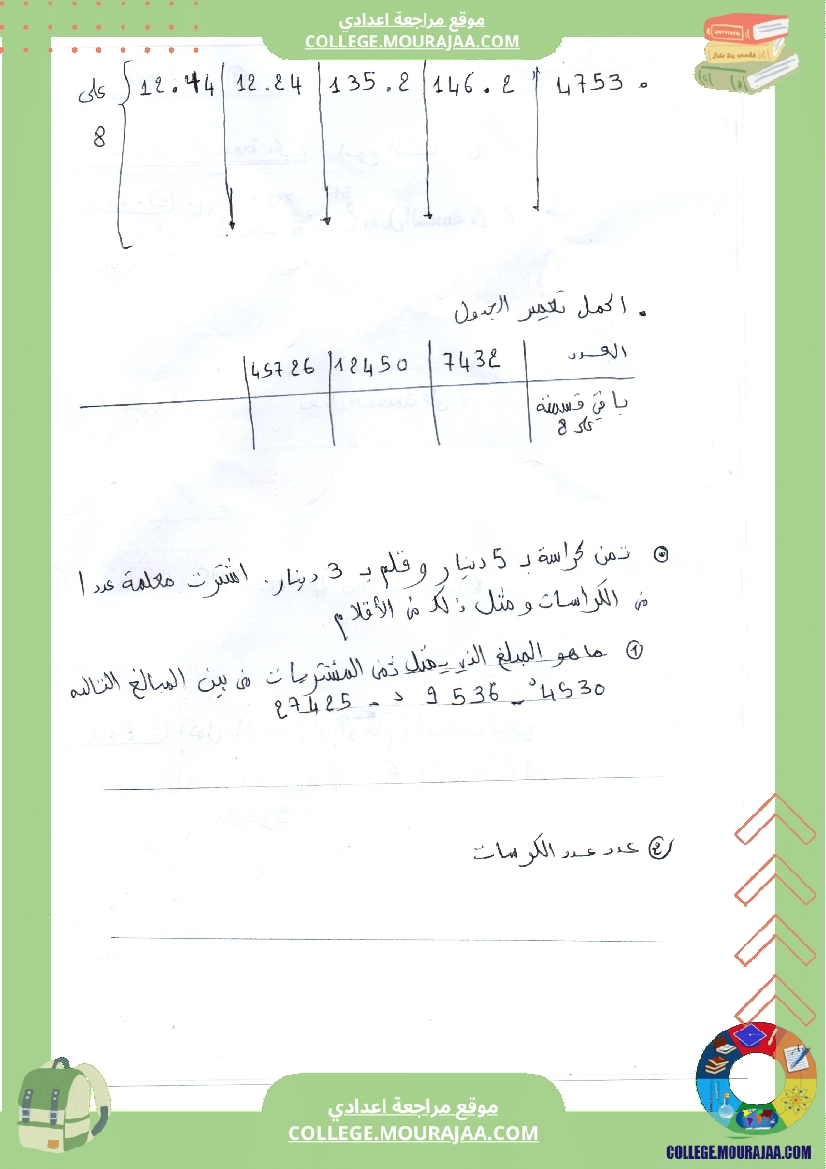 موقع مراجعة اعدادي
COLLEGE.MOURAJAA.COM
على 8 { 12.44 | 12.24 | 135.2 | 146.2 | 4753.
. اكمل تعمير الجدول
العدد | 7432 | 12450 | 45726
باقي قسمته على 8
ثمن كراسة بـ 5 دينار و قلم بـ 3 دينار. اشترت معلمة عددا
من الكراسات و مثل ذلك من الأقلام
① ما هو المبلغ الذي يمثل ثمن المشتريات من بين المبالغ التالية
4530 د - 9536 د - 27425
② عدد عدد الكرسات
موقع مراجعة اعدادي
COLLEGE.MOURAJAA.COM
COLLEGE.MOURAJAA.COM